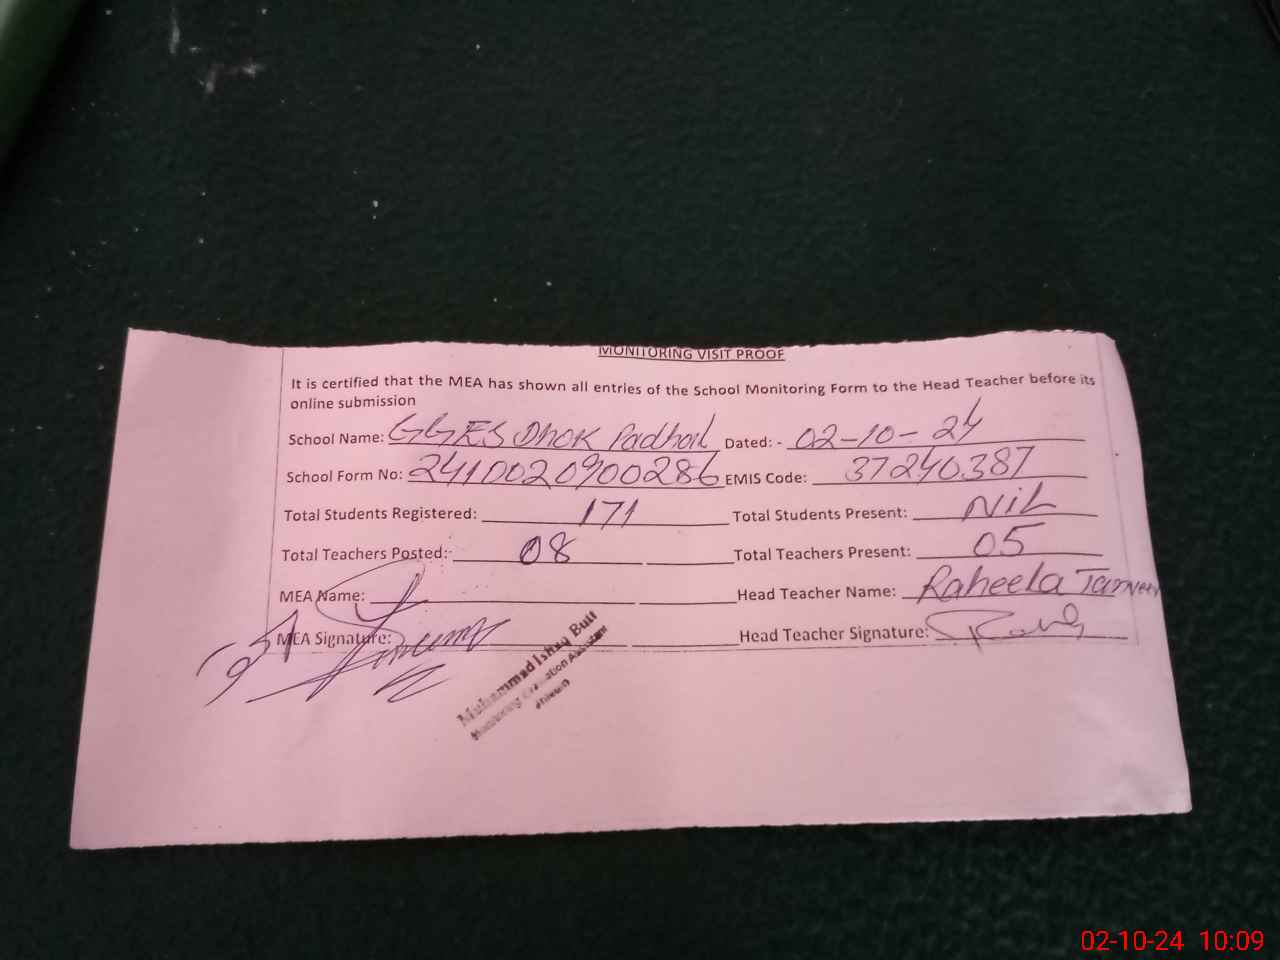 MONITORING VISIT PROOF
It is certified that the MEA has shown all entries of the School Monitoring Form to the Head Teacher before its
online submission
School Name: GGES Dhok Padhal Dated: - 02-10-24
School Form No: 2410020900286 EMIS Code: 37240387
Total Students Registered: 171 Total Students Present: NiL
Total Teachers Posted:- 08 Total Teachers Present: 05
MEA Name: Head Teacher Name: Raheela
MEA Signature: Head Teacher Signature:
Muhammad Ishaq Butt
Monitoring Evaluation Assistant
Jhelum
02-10-24 10:09